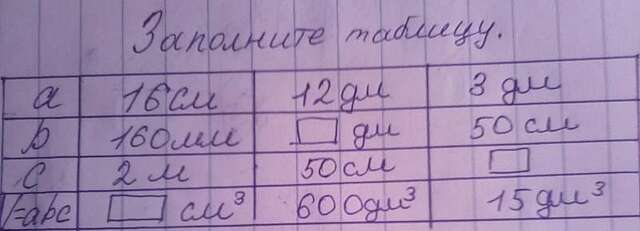 Заполните таблицу.
a 16 см 12 дм 3 дм
b 160 мм дм 50 см
c 2 м 50 см
V=abc см³ 600 дм³ 15 дм³